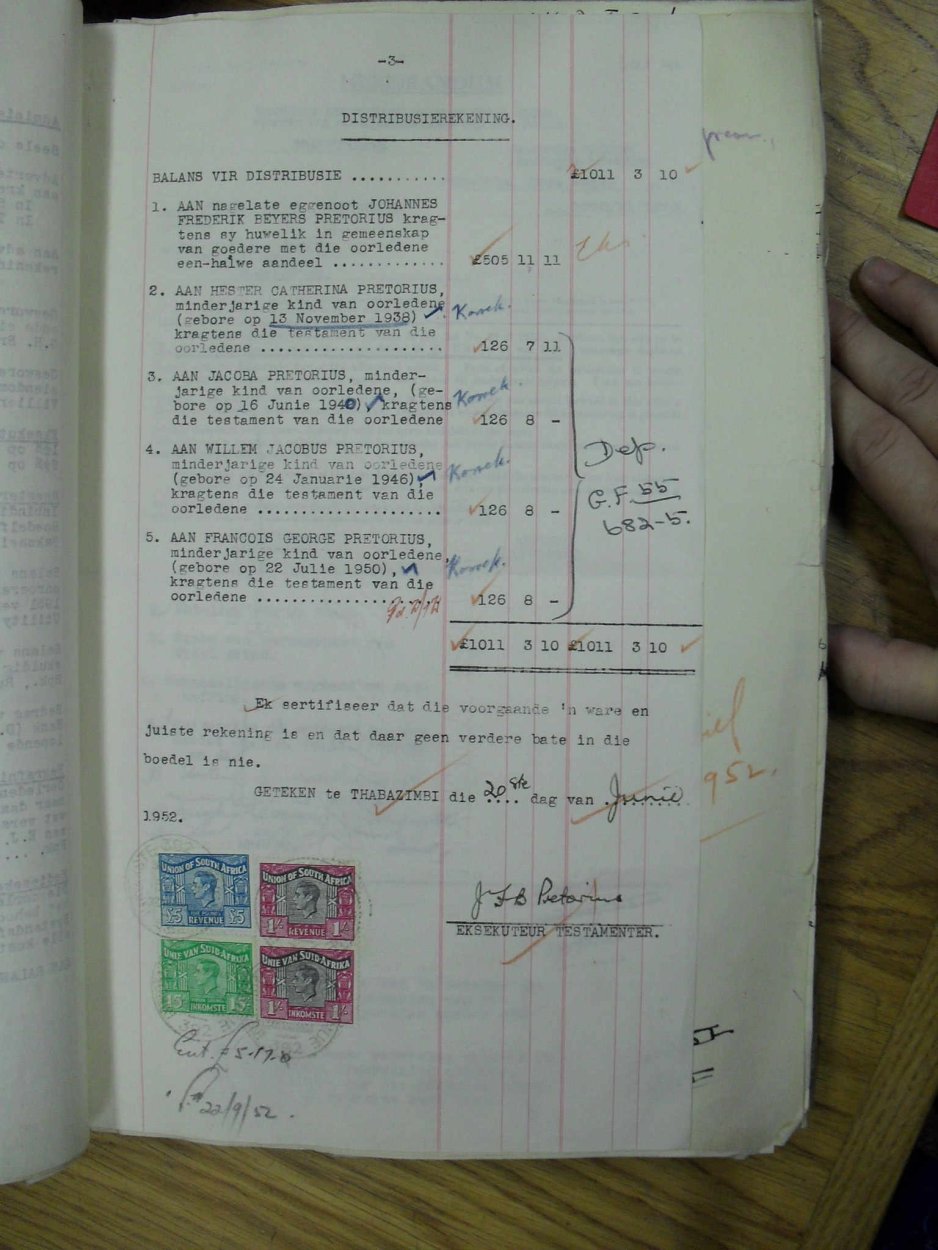 -3-
DISTRIBUSIEREKENING.
BALANS VIR DISTRIBUSIE ........... £1011 3 10
1. AAN nagelate eggenoot JOHANNES
FREDERIK BEYERS PRETORIUS krag-
tens sy huwelik in gemeenskap
van goedere met die oorledene
een-halwe aandeel ............. £505 11 11
2. AAN HESTER CATHERINA PRETORIUS,
minderjarige kind van oorledene
(gebore op 13 November 1938)
kragtens die testament van die
oorledene ..................... 126 7 11
3. AAN JACOBA PRETORIUS, minder-
jarige kind van oorledene, (ge-
bore op 16 Junie 1940) kragtens
die testament van die oorledene 126 8 -
4. AAN WILLEM JACOBUS PRETORIUS,
minderjarige kind van oorledene
(gebore op 24 Januarie 1946),
kragtens die testament van die
oorledene ..................... 126 8 -
Dep.
G.F. 55
682-5.
5. AAN FRANCOIS GEORGE PRETORIUS,
minderjarige kind van oorledene,
(gebore op 22 Julie 1950),
kragtens die testament van die
oorledene ..................... 126 8 -
£1011 3 10 £1011 3 10
Ek sertifiseer dat die voorgaande 'n ware en
juiste rekening is en dat daar geen verdere bate in die
boedel is nie.
GETEKEN te THABAZIMBI die 20ste dag van Junie
1952.
J F B Pretorius
EKSEKUTEUR TESTAMENTER.
UNION OF SOUTH AFRICA
£5 £5
REVENUE
UNION OF SOUTH AFRICA
1/- 1/-
REVENUE
UNIE VAN SUID AFRIKA
15/- 15/-
INKOMSTE
UNIE VAN SUID AFRIKA
1/- 1/-
INKOMSTE
22/9/52.
952.